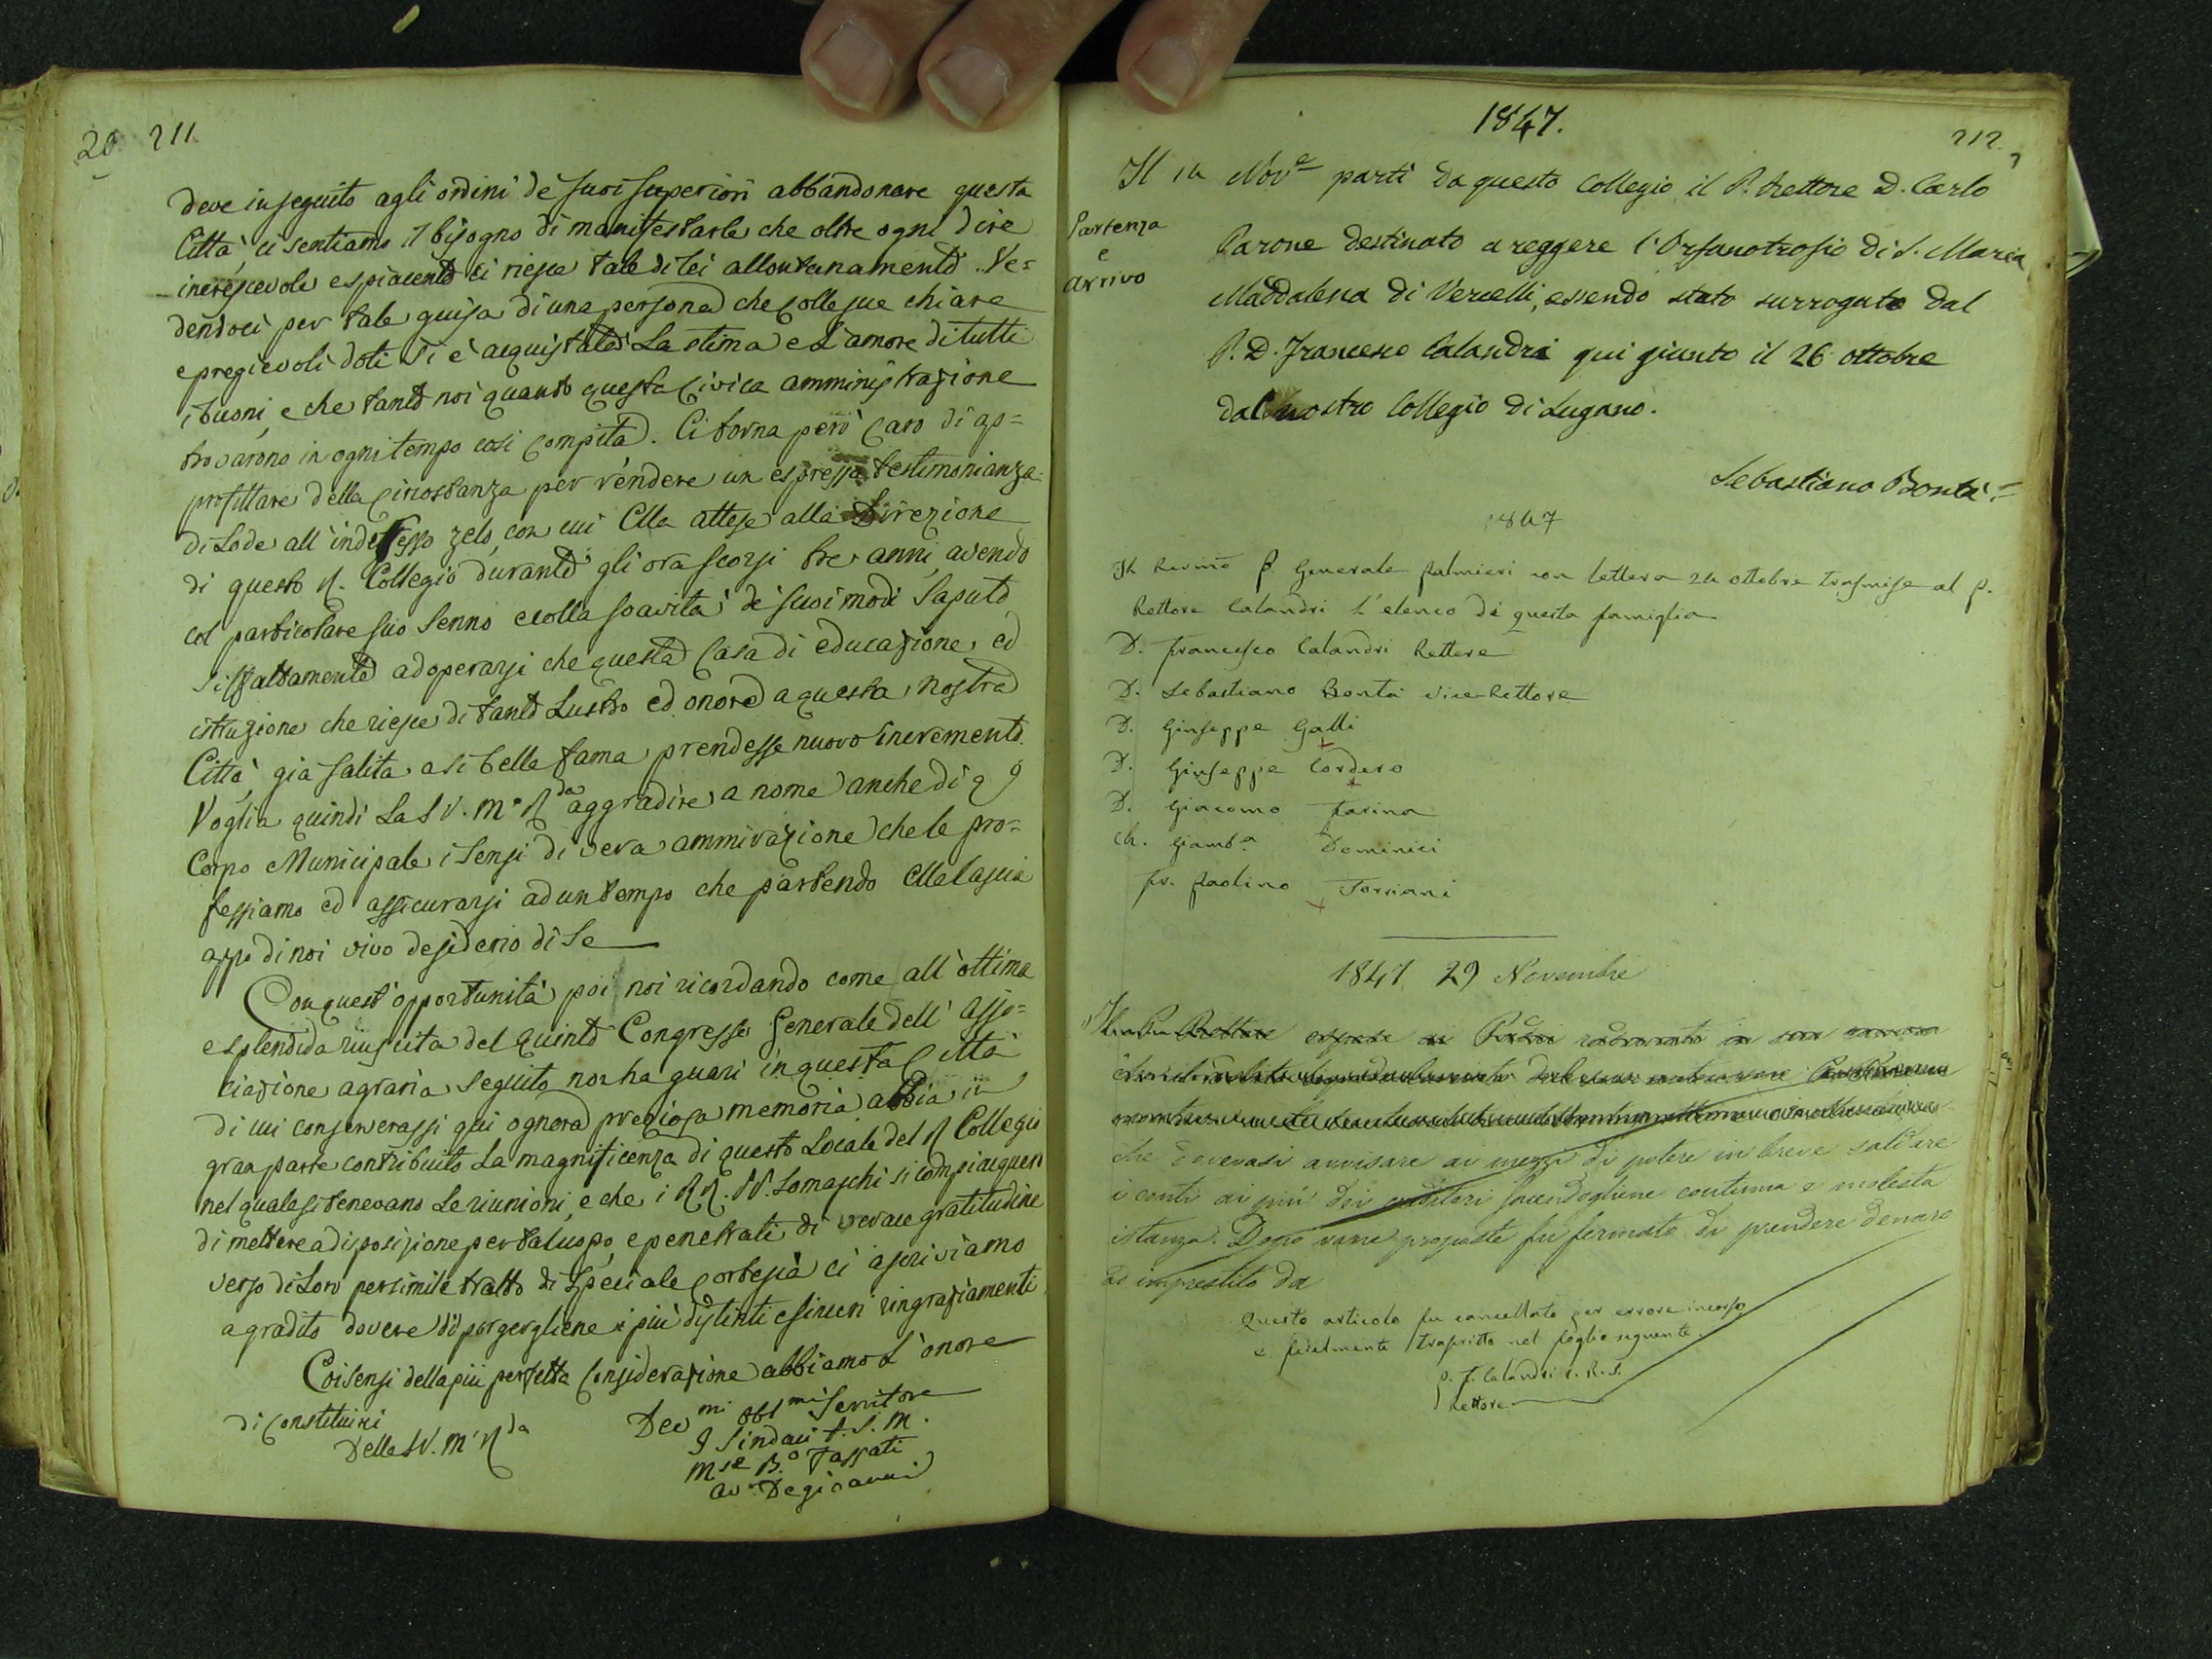 20 211.
deve in seguito agli ordini de' suoi superiori abbandonare questa
Città, ci sentiamo il bisogno di manifestarle che oltre ogni dire
increscevole e spiacente ci riesce tale di lei allontanamento. Ve=
dendoci per tale guisa di una persona che colle sue chiare
e pregievoli doti si è acquistate la stima e l'amore di tutti
i buoni, e che tanto noi quanto questa Civica amministrazione
trovarono in ogni tempo così compita. Ci torna però caro di ap=
profittare della circostanza per rendere un espressa testimonianza
di lode all'indefesso zelo, con cui Ella attese alla Direzione
di questo R. Collegio durante gli ora scorsi tre anni, avendo
col particolare suo senno e colla soavità de' suoi modi saputo
siffattamente adoperarsi che questa Casa di educazione, ed
istruzione che riesce di tanto lustro ed onore a questa nostra
Città, già salita a sì bella fama, prendesse nuovo incremento.
Voglia quindi la S V. M.o R.da aggradire a nome anche di q.o
Corpo Municipale i sensi di vera ammirazione che le pro=
fessiamo ed assicurarsi ad un tempo che partendo Ella lascia
appo di noi vivo desiderio di Se
Con quest'opportunità poi noi ricordando come all'ottima
e splendida riuscita del quinto Congresso Generale dell'Asso=
ciazione agraria seguito non ha guari in questa Città
di cui conserverassi qui ognora preziosa memoria abbia in
gran parte contribuito la magnificenza di questo Locale del R Collegio
nel quale si tenevano le riunioni, e che i RR. PP. Somaschi si compiacquero
di mettere a disposizione per tal uopo, e penetrati di verace gratitudine
verso di Loro per simile tratto di speciale cortesia ci ascriviamo
a gradito dovere di porgergliene i più distinti e sinceri ringraziamenti
Coi sensi della più perfetta considerazione abbiamo l'onore
di constituirci
Della S V. M.o R.da
Dev.mi Obl.mi Servitore
I Sindaci
M.se B.o Tassati
Av.o Degiovanni
1847.
212.
Partenza
e
arrivo
Il 14 Nov.e partì da questo Collegio il P. Rettore D. Carlo
Parone destinato a reggere l'Orfanotrofio di S. Maria
Maddalena di Vercelli, essendo stato surrogato dal
P. D. Francesco Calandri qui giunto il 26 ottobre
dal nostro Collegio di Lugano.
Sebastiano Bontà.=
1847
Il Rev.mo P. Generale Palmieri con lettera 24 ottobre trasmise al P.
Rettore Calandri l'elenco di questa famiglia
D. Francesco Calandri Rettore
D. Sebastiano Bontà Vice-Rettore
D. Giuseppe Galli
D. Giuseppe Cordero
D. Giacomo Farina
Ch. Giamb.a Dominici
fr. Paolino Torriani
1847 29 Novembre
Il Rettore espose ai Padri radunati in sua camera
che dovevasi avvisare ai mezzi di potere in breve saldare
i conti ai più dei creditori facendogliene continua e molesta
istanza. Dopo varie proposte fu fermato di prendere denaro
ad imprestito da
Questo articolo fu cancellato per errore incorso
e fedelmente trascritto nel foglio seguente.
P. F. Calandri C. R. S.
Rettore